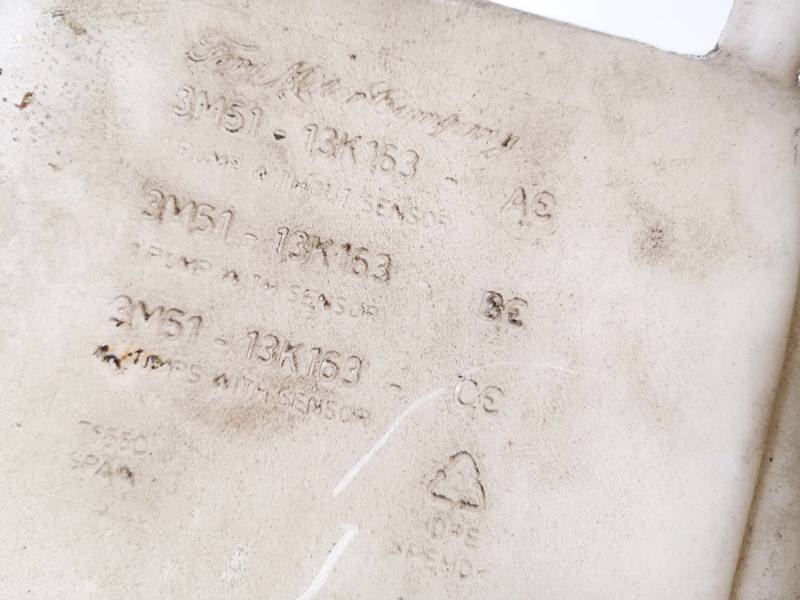 Ford Motor Company
3M51 - 13K163 - AE
1 PUMP WITHOUT SENSOR
3M51 - 13K163 - BE
1 PUMP WITH SENSOR
3M51 - 13K163 - CE
PUMPS WITH SENSOR
SPAIN
HDPE
>PEHD<